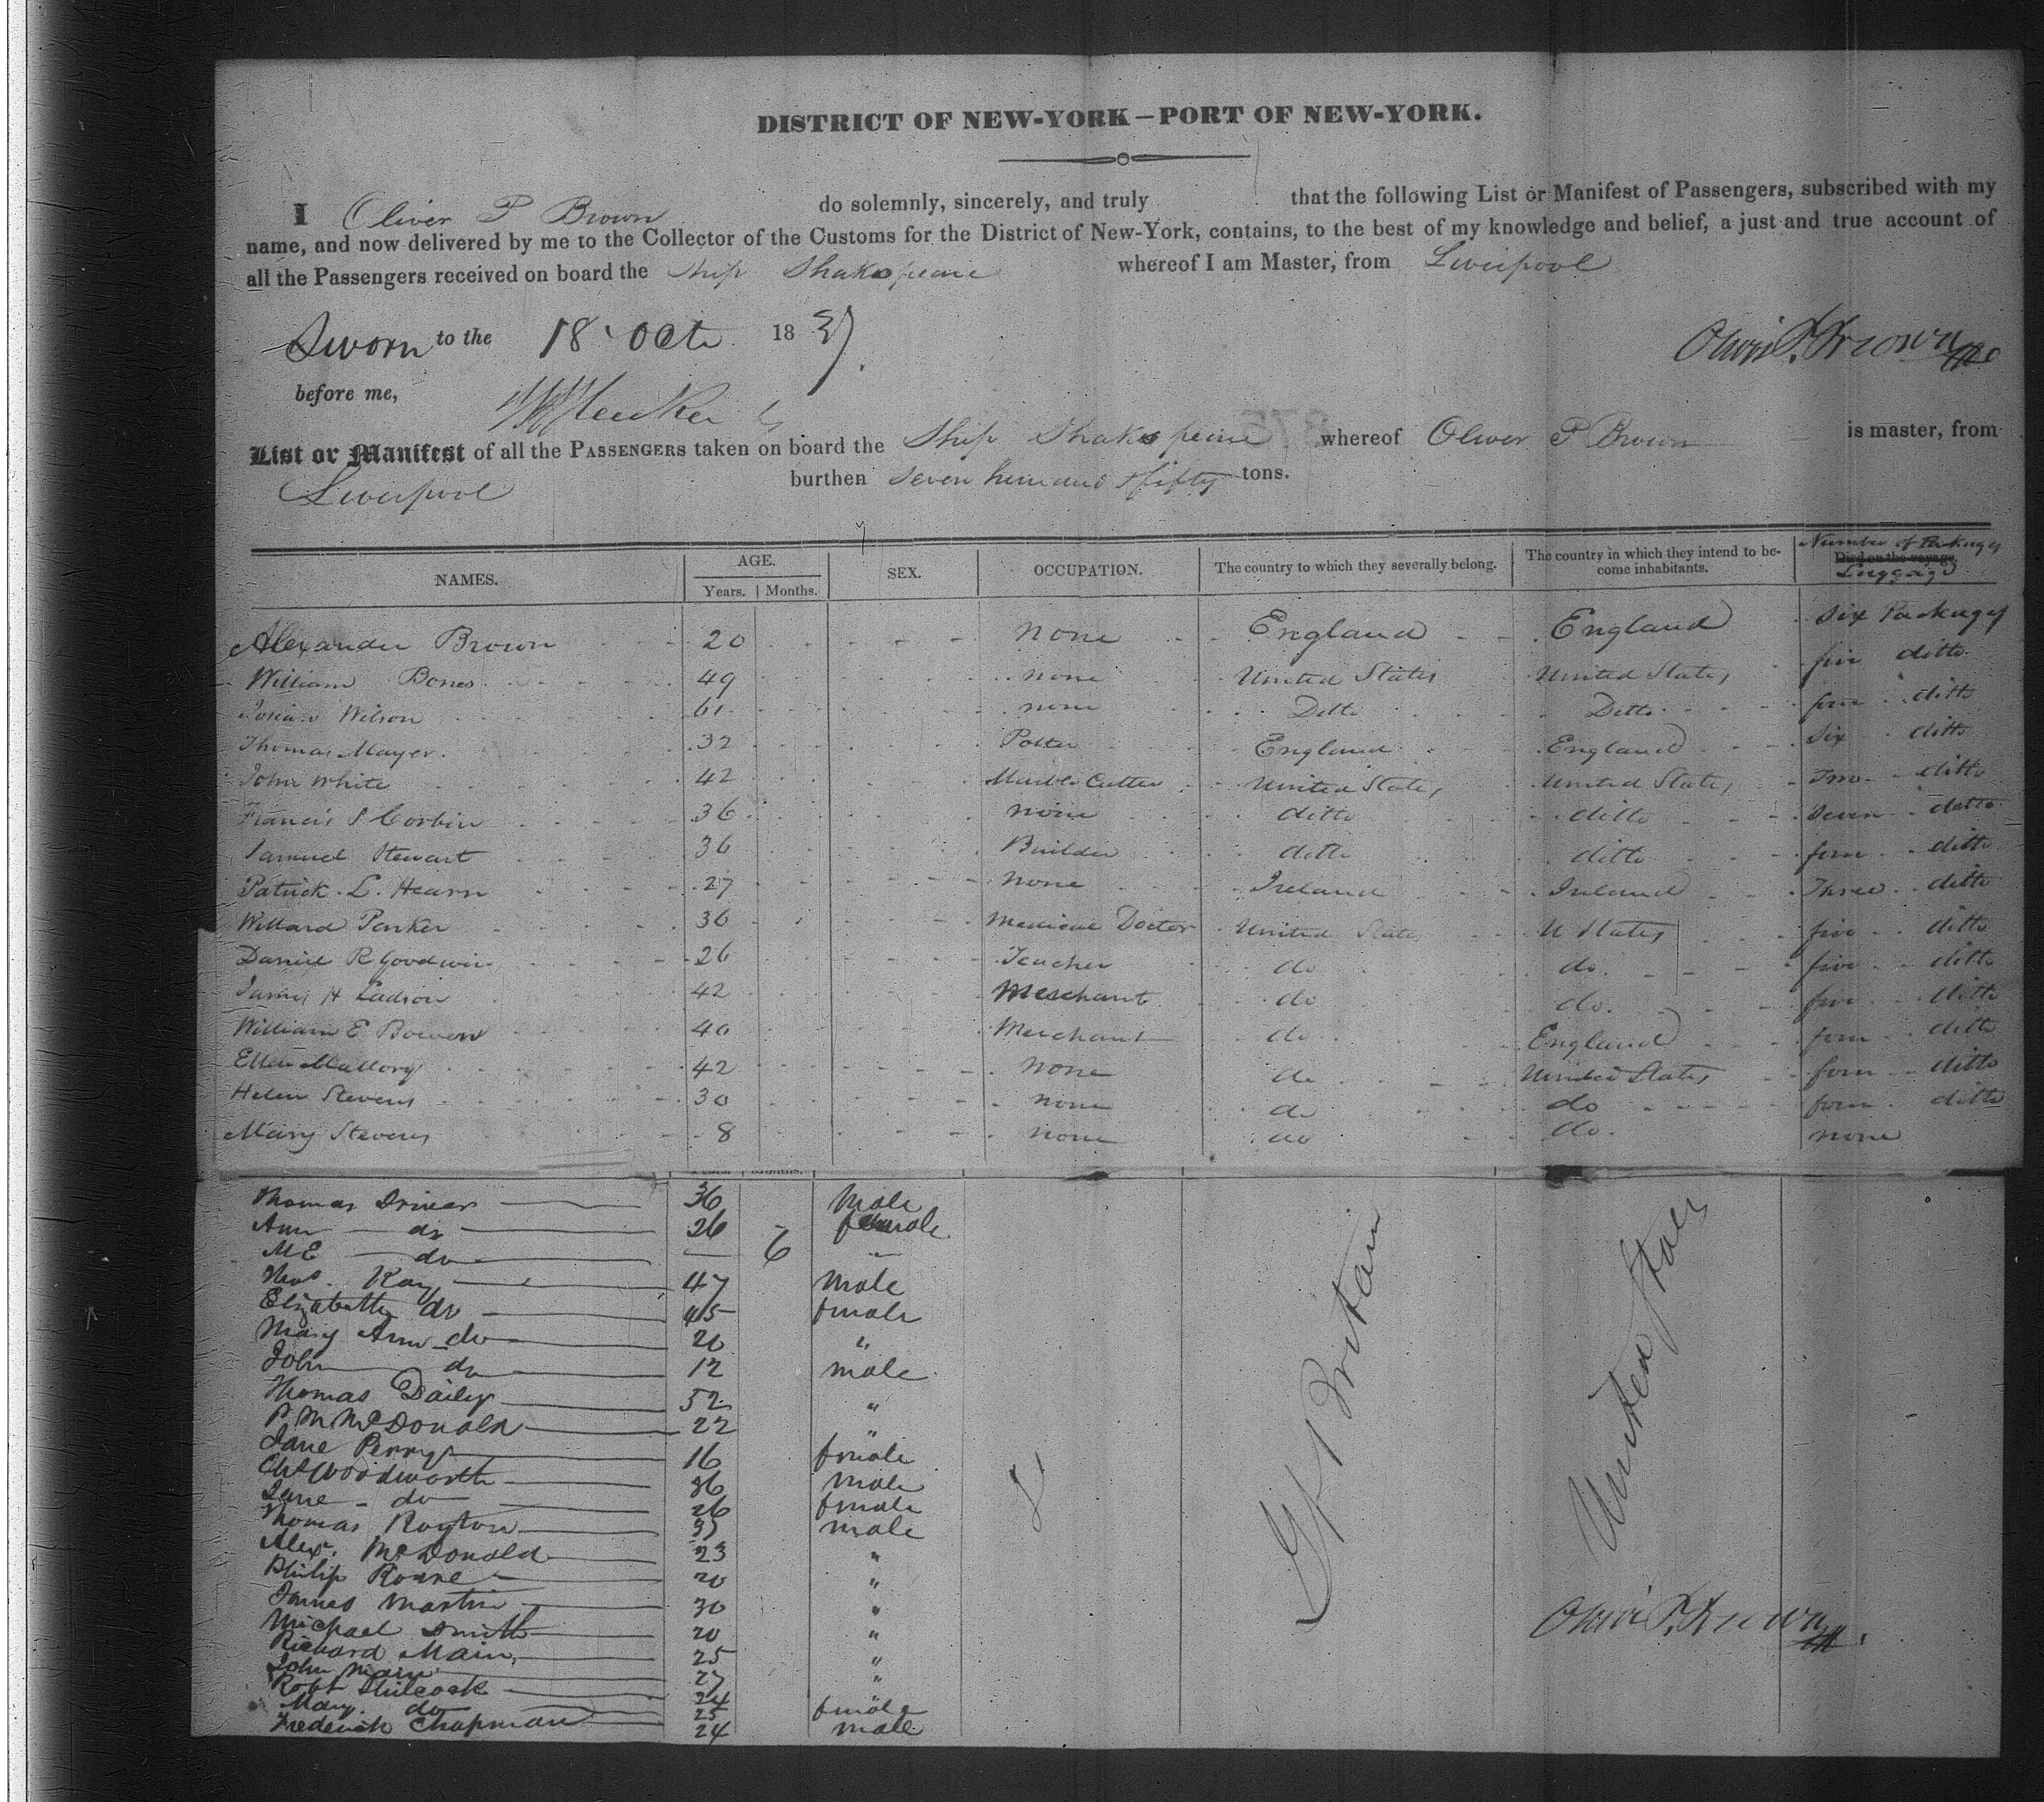 DISTRICT OF NEW-YORK—PORT OF NEW-YORK.
I Oliver P Brown do solemnly, sincerely, and truly that the following List or Manifest of Passengers, subscribed with my
name, and now delivered by me to the Collector of the Customs for the District of New-York, contains, to the best of my knowledge and belief, a just and true account of
all the Passengers received on board the ship Shakspeare whereof I am Master, from Liverpool
Sworn to the 18 Oct 1837.
Oliver P. Brown
before me,
List or Manifest of all the PASSENGERS taken on board the Ship Shakspeare whereof Oliver P Brown is master, from
Liverpool burthen Seven hundred & fifty tons.
NAMES. AGE. Years. Months. SEX. OCCUPATION. The country to which they severally belong. The country in which they intend to become inhabitants. Number of Packages Died on the voyage Luggage
Alexander Brown 20 none England England Six Packages
William Bones 49 none United States United States five ditto
Josiah Wilson 61 none Ditto Ditto four ditto
Thomas Mayer 32 Potter England England Six ditto
John White 42 Marble Cutter United States United States Two ditto
Francis P Corbin 36 none ditto ditto Seven ditto
Samuel Stewart 36 Builder ditto ditto four ditto
Patrick L. Hearn 27 none Ireland Ireland Three ditto
Willard Parker 36 Medical Doctor United States U States five ditto
Daniel R Goodwin 26 Teacher do do five ditto
James H Ladson 42 Merchant do do. five ditto
William E Bowen 40 Merchant do England four ditto
Ellen Mallory 42 none do United States four ditto
Helen Stevens 30 none do do four ditto
Mary Stevens 8 none do do. none
Thomas Driver 36 Male
Ann do 26 female
M E do 6 "
Thos. Kay 47 Male
Elizabeth do 45 female
Mary Ann do 20 "
John do 12 male
Thomas Daily 52 "
P M McDonald 22 "
Jane Perry 16 female
Chs Woodworth 36 Male
Jane do 26 female
Thomas Royton 35 male
Alexr. McDonald 23 "
Philip Roane 20 "
James Martin 30 "
Michael Smith 20 "
Richard Main 25 "
John Main 27 "
Robt Hilcock 24 "
Mary do 25 female
Frederick Chapman 24 male
Gt Britain
United States
Oliver P. Brown